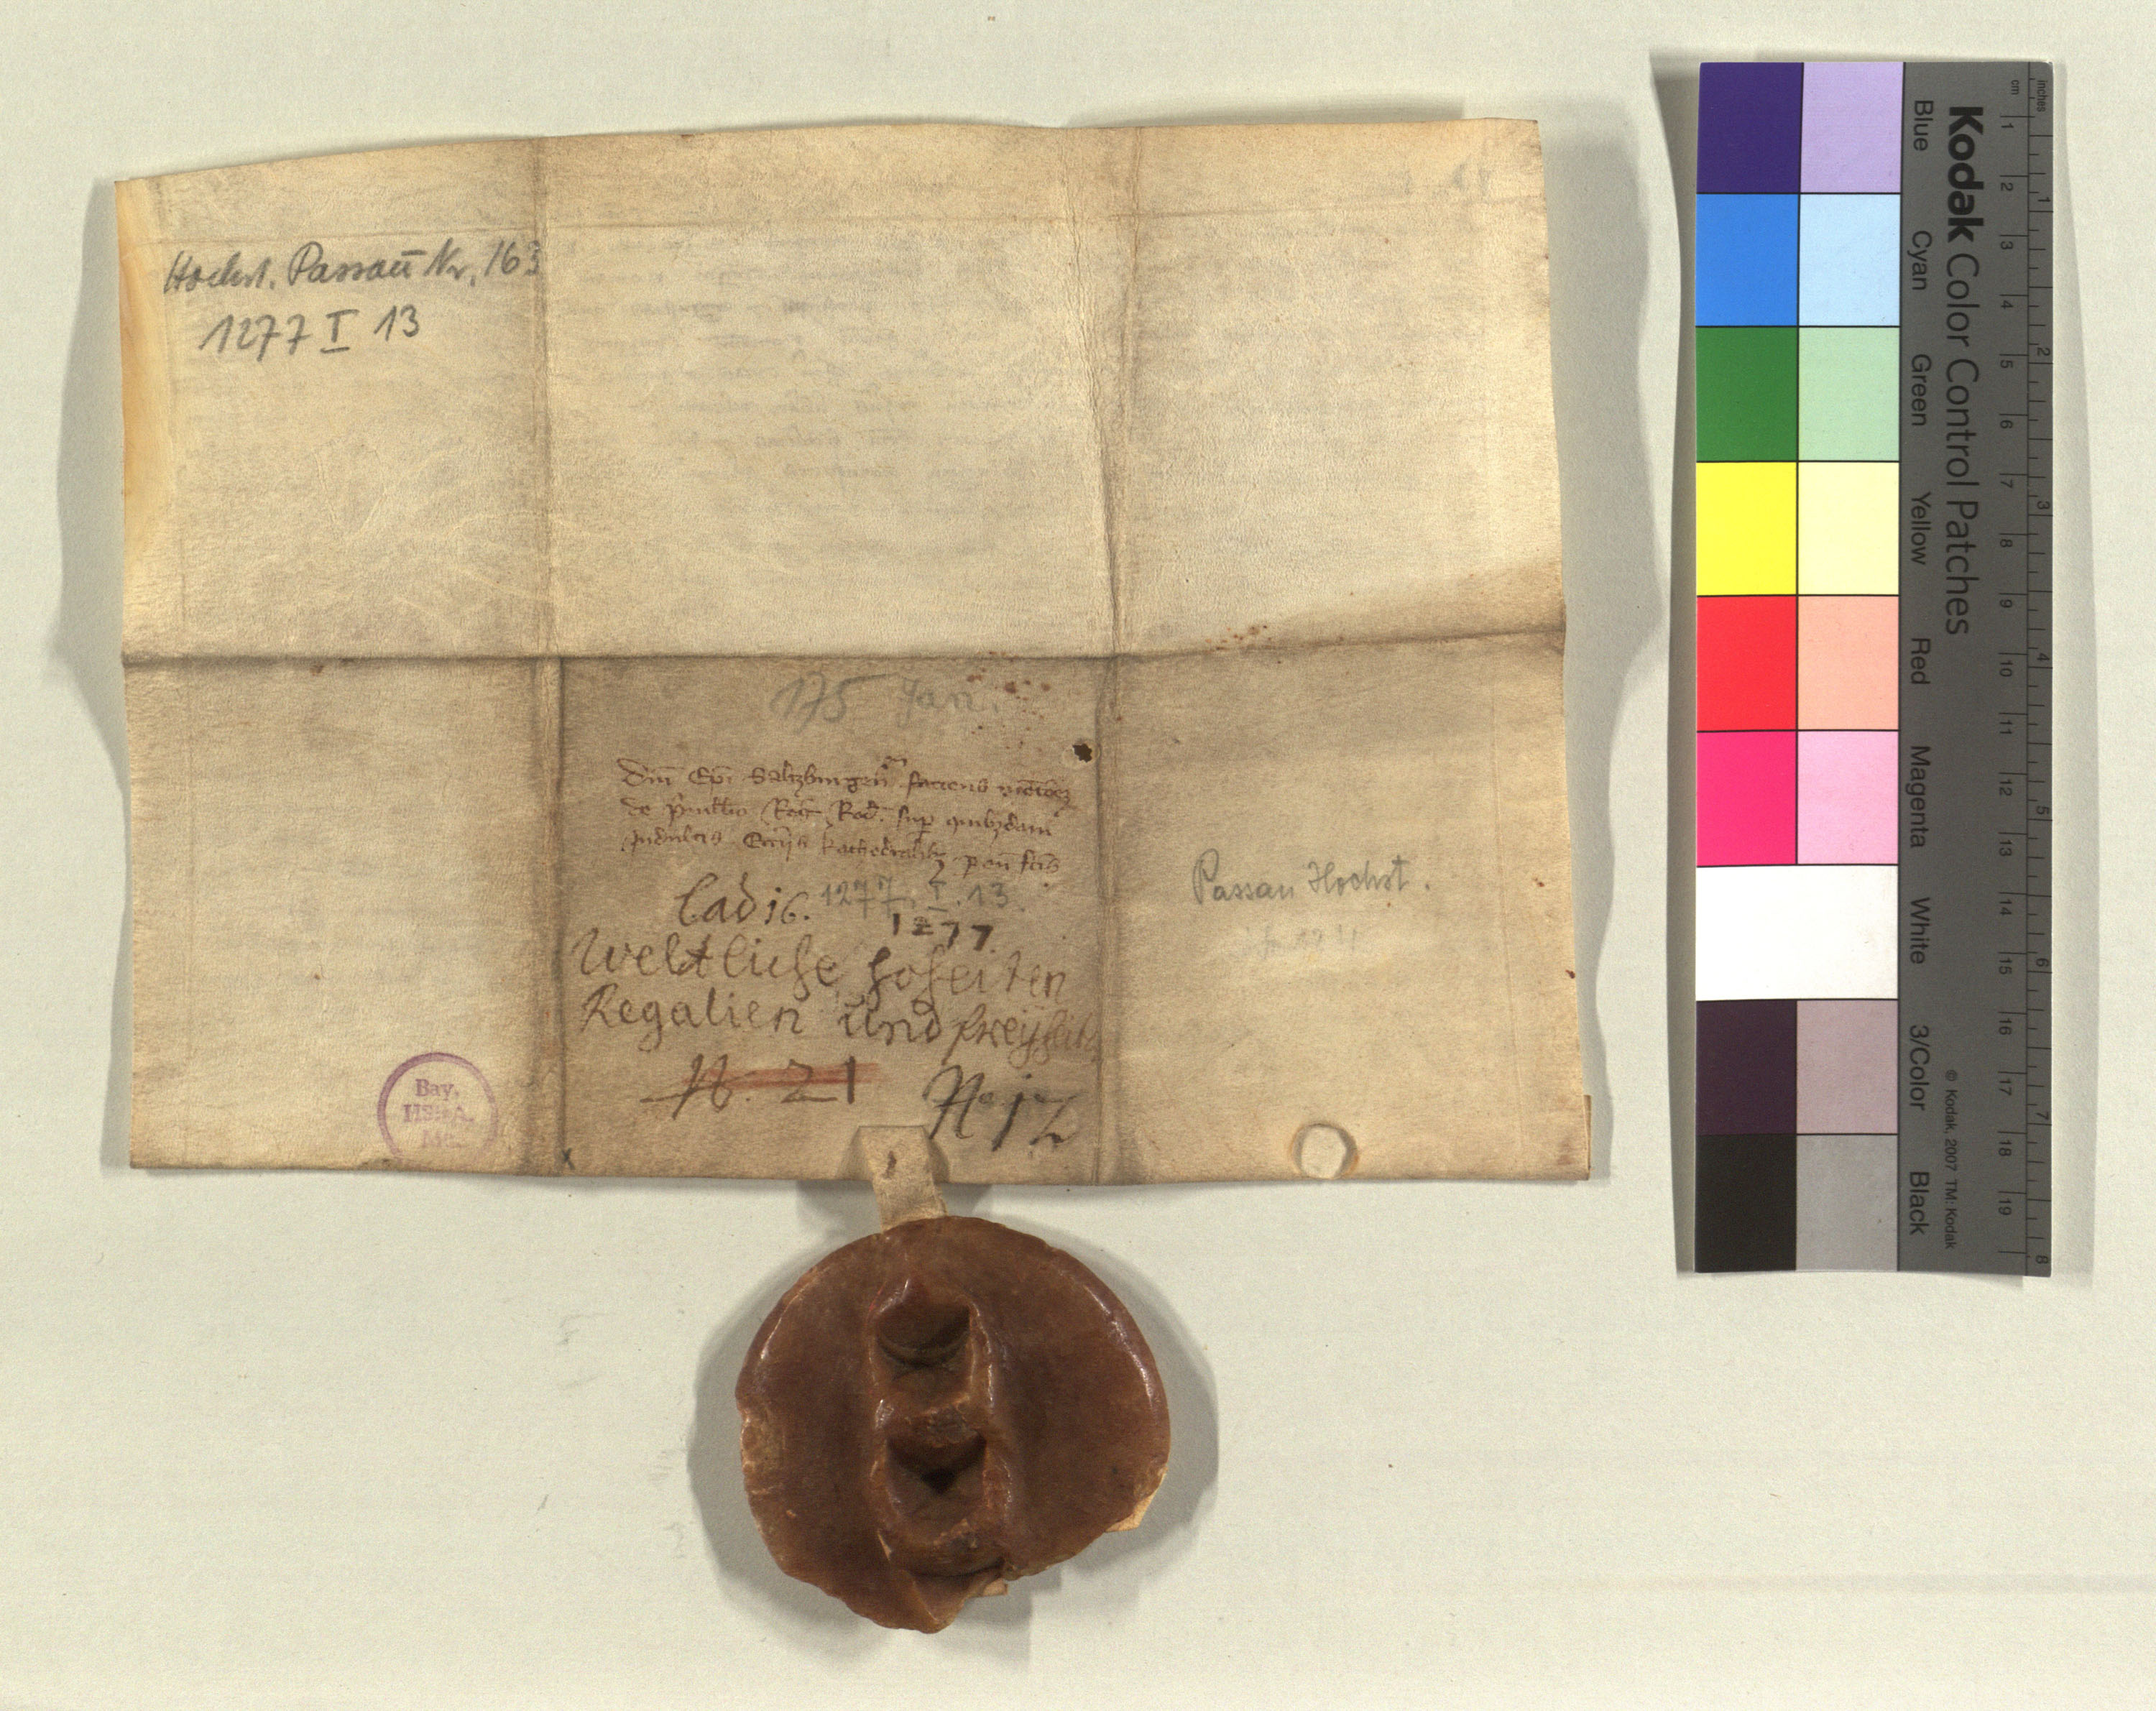 Hochst. Passau Nr. 163
1277 I 13
175 Jan.
Dni Epi Saltzburgen faciens
de Rod. sup quibusdam
indultis kathedralibz
Lad 16. 1277. I. 13.
1277.
Weltliche Hoheiten
Regalien und freyheiten
N. 21 No 12
Passau Hochst.
Bay.
HStA.
Kodak Color Control Patches
Blue Cyan Green Yellow Red Magenta White 3/Color Black
© Kodak, 2007 TM: Kodak
inches 1 2 3 4 5 6 7 8
cm 1 2 3 4 5 6 7 8 9 10 11 12 13 14 15 16 17 18 19